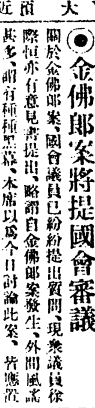 大
預近
◉金佛郎案將提國會審議
關於金佛郎案、國會議員已紛紛提出質問、現衆議員徐
際恒亦有意見書提出、略謂自金佛郎案發生、外間風謠
甚多、謂有種種黑幕、本席以爲今日討論此案、皆應置